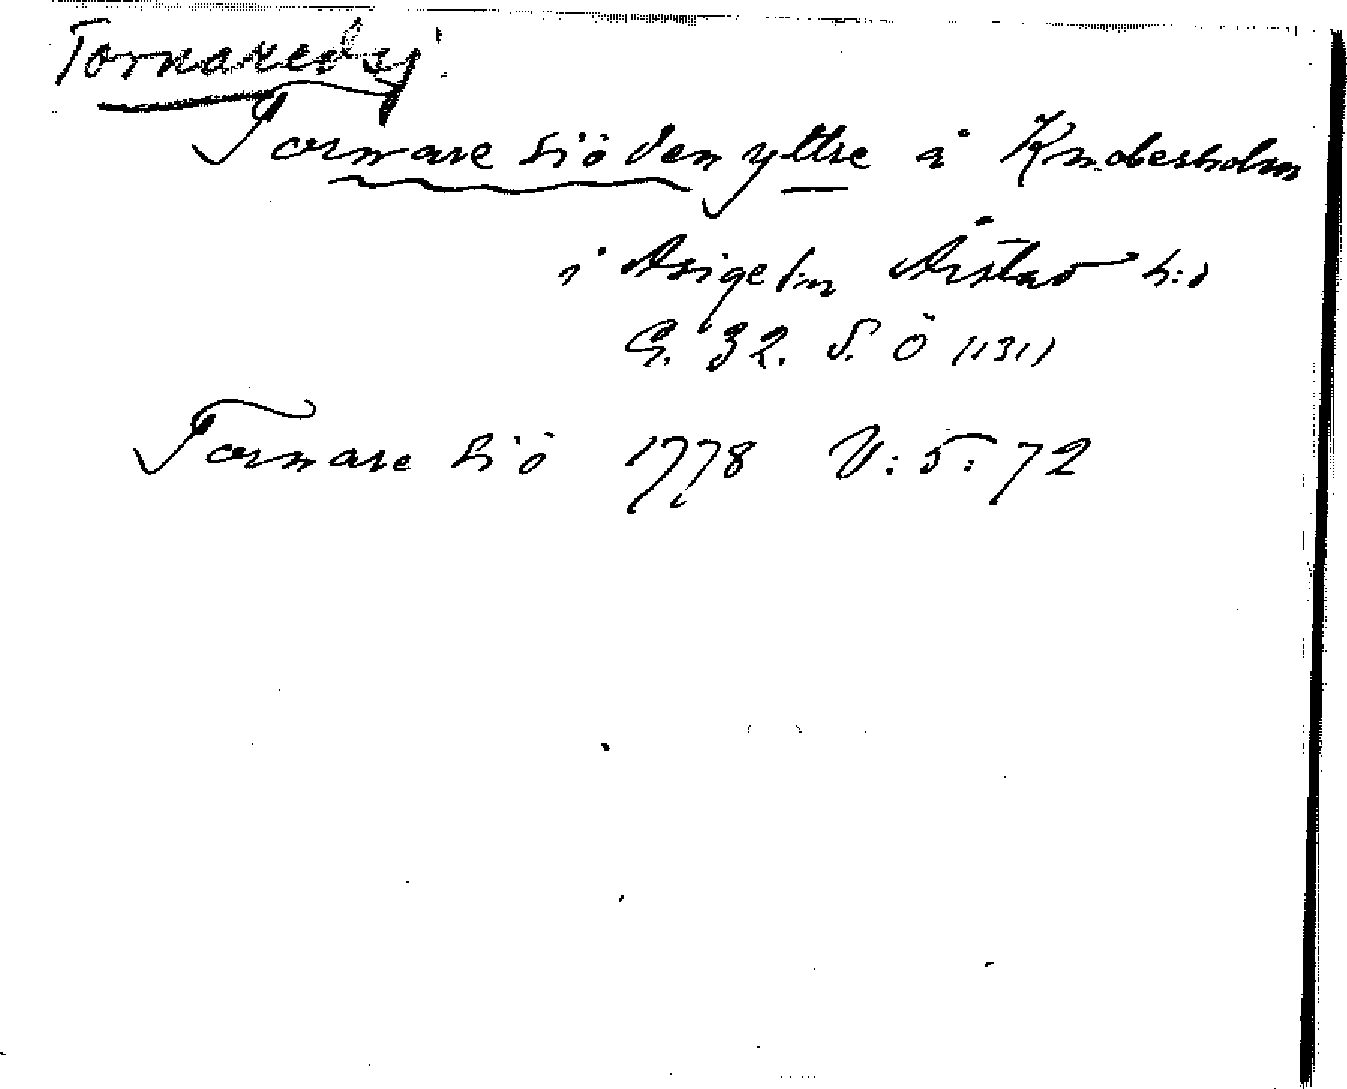 Tornaredsj.
Tornare siö den yttre å Knobesholm
i Asige sn Årstad h:d
G. 32. S. Ö (131)
Tornare siö 1778 V: 5: 72